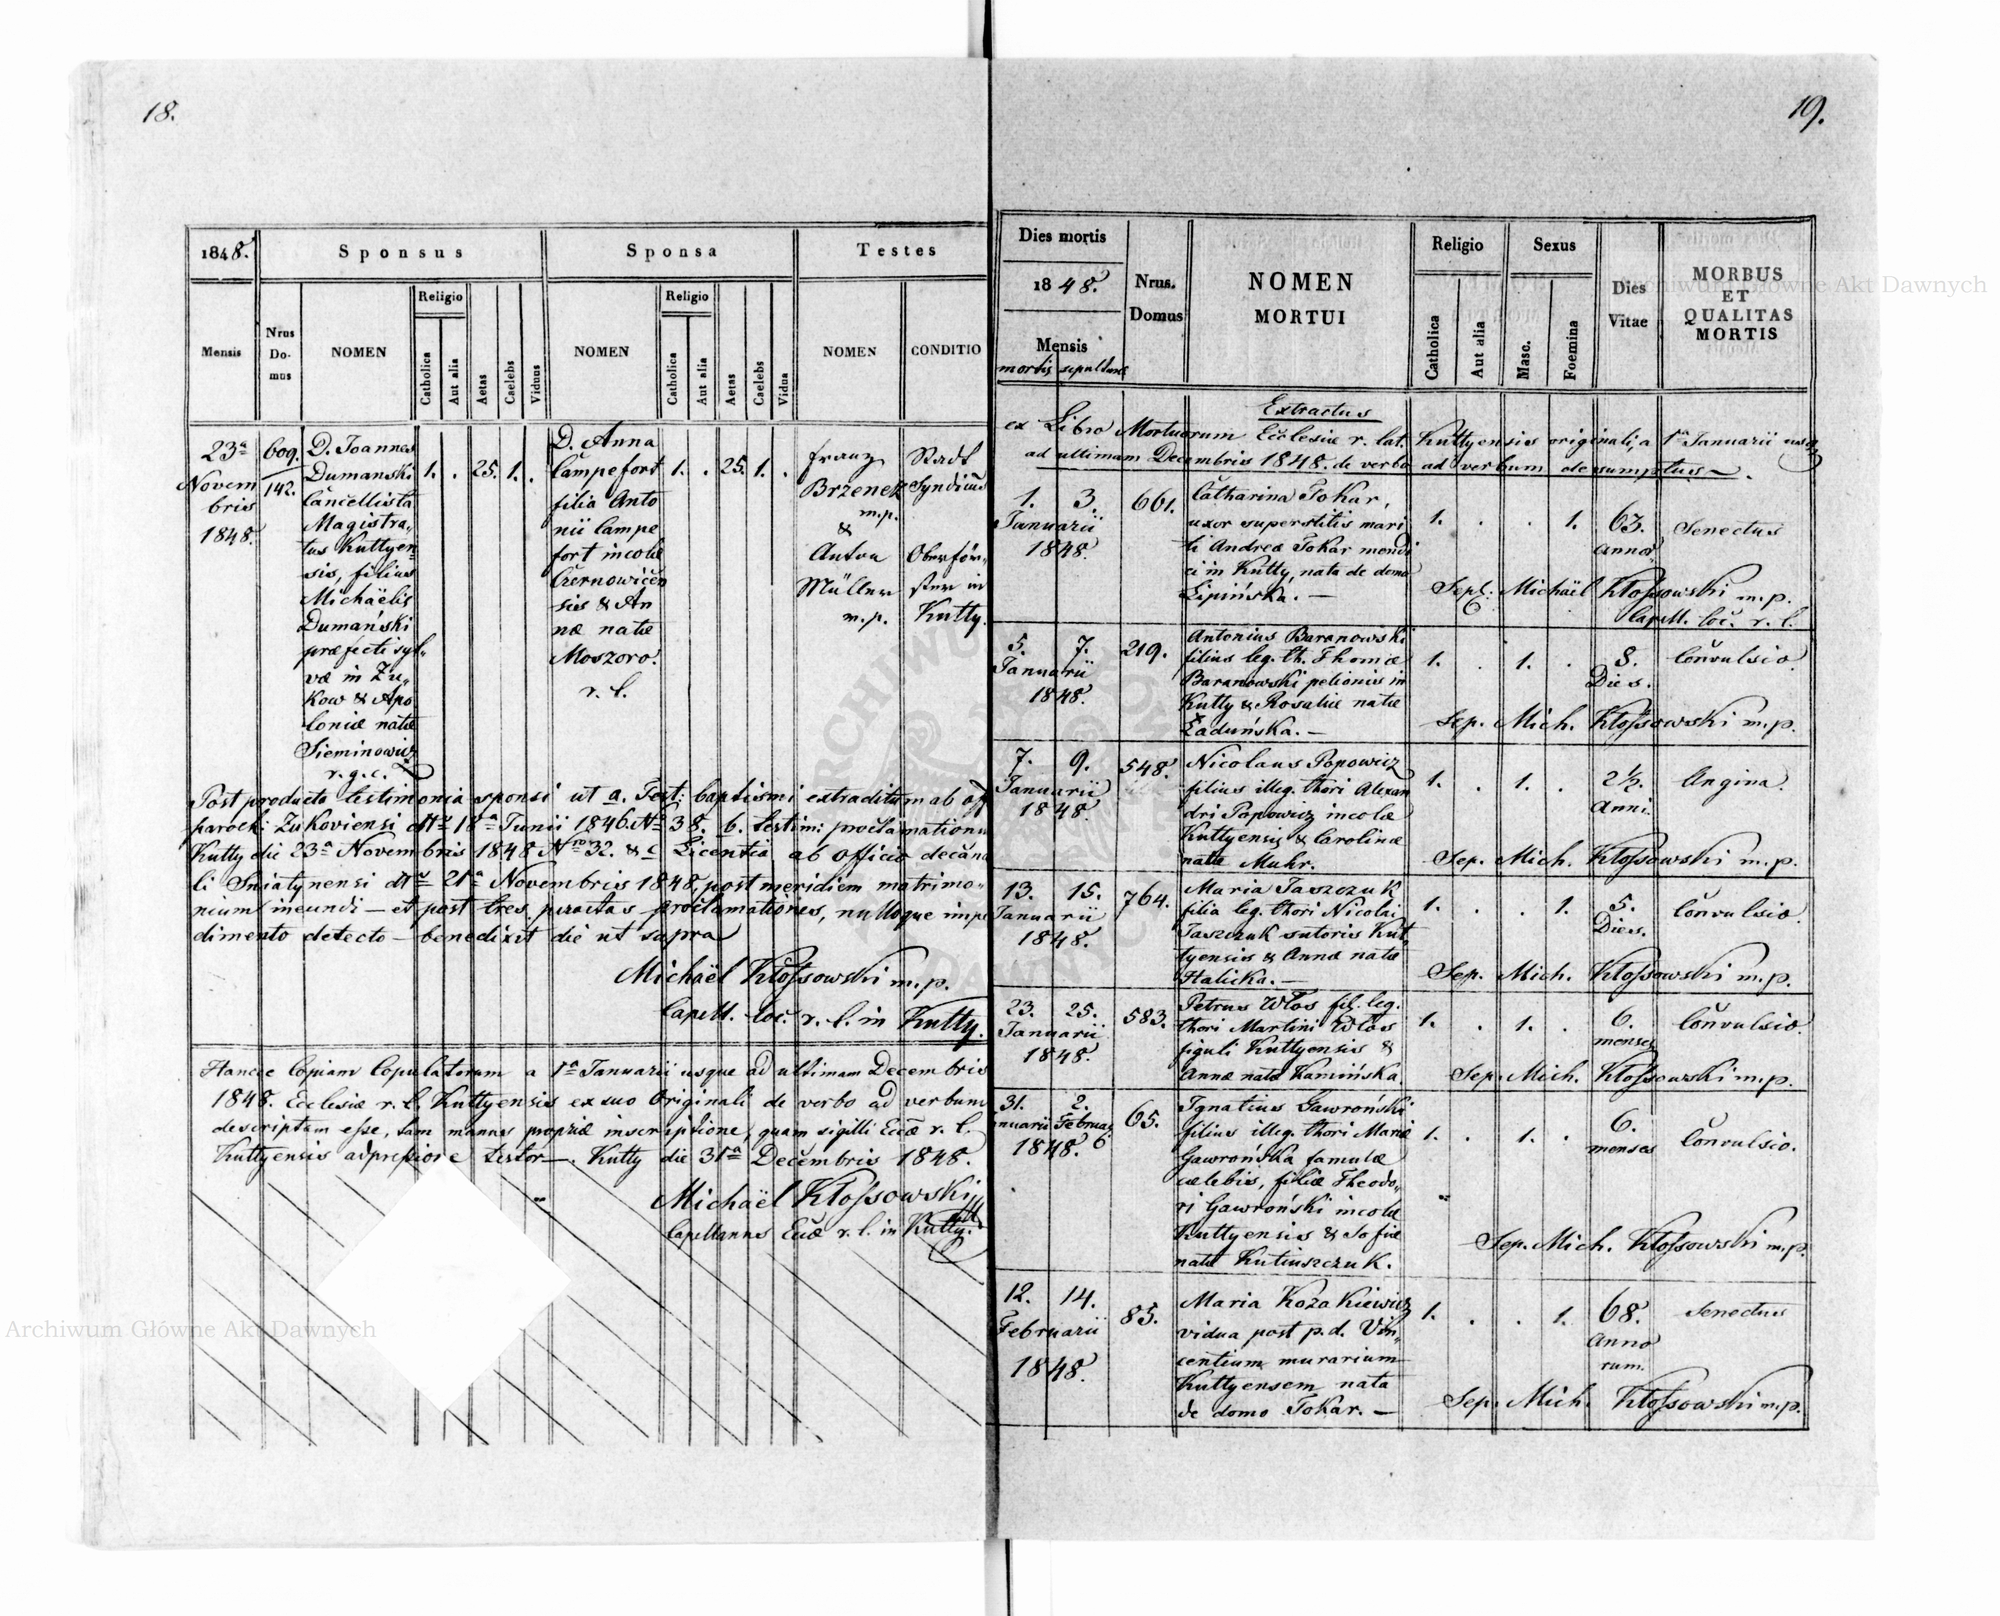 18.
1848.
Sponsus
Sponsa
Testes
Mensis
Nrus Do- mus
NOMEN
Religio
Catholica
Aut alia
Aetas
Caelebs
Viduus
NOMEN
Religio
Catholica
Aut alia
Aetas
Caelebs
Vidua
NOMEN
CONDITIO
23a
Novem
bris
1848.
609.
142.
D. Joannes
Dumanski
Cancellista
Magistra-
tus Kuttyen
sis, filius
Michaëlis
Dumański
præfecti syl-
væ in Zu-
kow & Apo
loniæ natæ
Sieminowicz
r. g. c.
1. . 25. 1. .
D. Anna
Campefort
filia Anto
nii Campe
fort incolæ
Czernowicen
sis & An
næ natæ
Moszoro.
r. l.
1. . 25. 1. .
Franz
Brzenek
m.p.
&
Anton
Müller
m.p.
Stadt
Syndicus
Oberför-
ster in
Kutty.
Post producta testimonia sponsi ut a. Test: baptismi extraditum ab off
parochi Zukoviensi dtto 18a Junii 1846. No 38. b. testim: proclamationum
Kutty die 23a Novembris 1848 Nro 32. & c Licentia ab officio decana
li Sniatynensi dtto 21a Novembris 1848, post meridiem matrimo-
nium ineundi — et post tres peractas proclamationes, nulloque impe
dimento detecto — benedixit die ut supra
Michaël Kłossowski m.p.
Capell. loc. r. l. in Kutty.
Hancce Copiam Copulatorum a 1a Januarii usque ad ultimam Decembris
1848. Ecclesiæ r. l. Kuttyensis ex suo Originali de verbo ad verbum
descriptam esse, tam manus propriæ inscriptione, quam sigilli Eccæ r. l.
Kuttyensis adpressione testor —. Kutty die 31a Decembris 1848.
Michaël Kłossowski
Capellanus Eccæ r. l. in Kutty.
19.
Dies mortis
1848.
Mensis
mortis sepulturæ
Nrus. Domus
NOMEN
MORTUI
Religio
Catholica
Aut alia
Sexus
Masc.
Foemina
Dies
Vitae
MORBUS
ET
QUALITAS
MORTIS
Extractus
ex Libro Mortuorum Ecclesiæ r. lat. Kuttyensis originali, a 1a Januarii usq
ad ultimam Decembris 1848. de verbo ad verbum desumptus —.
1. 3.
Januarii
1848.
661.
Catharina Tokar,
uxor superstitis mari
ti Andreæ Tokar mendi
ci in Kutty, nata de domo
Lipińska. —
1. . . 1.
63.
anno
Senectus
Sepl: Michaël Kłossowski m.p.
Capell. loc. r. l.
5. 7.
Januarii
1848.
219.
Antonius Baranowski
filius leg. th. Thomæ
Baranowski pelionis in
Kutty & Rosaliæ natæ
Ładuńska. —
1. . 1. .
8.
Dies.
Convulsio.
Sep. Mich. Kłossowski m.p.
7. 9.
Januarii
1848.
548.
Nicolaus Popowicz
filius illeg. thori Alexan
dri Popowicz incolæ
Kuttyensis & Carolinæ
natæ Muhr.
1. . 1. .
2½.
anni.
Angina.
Sep. Mich. Kłossowski m.p.
13. 15.
Januarii
1848.
764.
Maria Jaszczuk
filia leg. thori Nicolai
Jaszczuk sutoris Kut,
tyensis & Annæ natæ
Halicka. —
1. . . 1.
5.
Dies.
Convulsio.
Sep. Mich. Kłossowski m.p.
23. 25.
Januarii
1848.
583.
Petrus Włos fil. leg.
thori Martini Włos
figuli Kuttyensis &
Annæ natæ Kamińska.
1. . 1. .
6.
menses
Convulsio.
Sep. Mich. Kłossowski m.p.
31. 2.
nuarii Februar
1848.
65.
Ignatius Gawroński
filius illeg. thori Mariæ
Gawrońska famulæ
cælebis, filiæ Theodo-
ri Gawroński incolæ
Kuttyensis & Sofiæ
natæ Kutiuszczuk.
1. . 1. .
6.
menses
Convulsio.
Sep. Mich. Kłossowski m.p.
12. 14.
Februarii
1848.
85.
Maria Kozakiewicz
vidua post p. d. Vin-
centium murarium
Kuttyensem nata
de domo Tokar. —
1. . . 1.
68.
anno
rum.
Senectus
Sep. Mich. Kłossowski m.p.
Archiwum Główne Akt Dawnych
Archiwum Główne Akt Dawnych